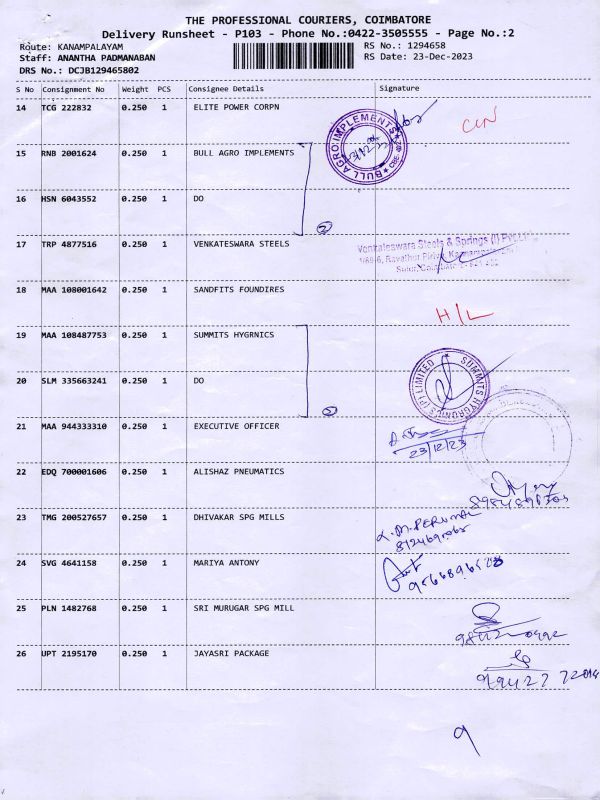 THE PROFESSIONAL COURIERS, COIMBATORE
Delivery Runsheet - P103 - Phone No.:0422-3505555 - Page No.:2
Route: KANAMPALAYAM
Staff: ANANTHA PADMANABAN
DRS No.: DCJB129465802
RS No.: 1294658
RS Date: 23-Dec-2023
S No Consignment No Weight PCS Consignee Details Signature
14 TCG 222832 0.250 1 ELITE POWER CORPN
BULL AGRO IMPLEMENTS
15 RNB 2001624 0.250 1 BULL AGRO IMPLEMENTS
16 HSN 6043552 0.250 1 DO
2
17 TRP 4877516 0.250 1 VENKATESWARA STEELS
Venkateswara Steels & Springs (I)
18 MAA 108001642 0.250 1 SANDFITS FOUNDIRES
H/L
19 MAA 108487753 0.250 1 SUMMITS HYGRNICS
20 SLM 335663241 0.250 1 DO
SUMMITS HYGRONICS (P) LIMITED
2
21 MAA 944333310 0.250 1 EXECUTIVE OFFICER
23/12/23
22 EDQ 700001606 0.250 1 ALISHAZ PNEUMATICS
23 TMG 200527657 0.250 1 DHIVAKAR SPG MILLS
24 SVG 4641158 0.250 1 MARIYA ANTONY
25 PLN 1482768 0.250 1 SRI MURUGAR SPG MILL
26 UPT 2195170 0.250 1 JAYASRI PACKAGE
9